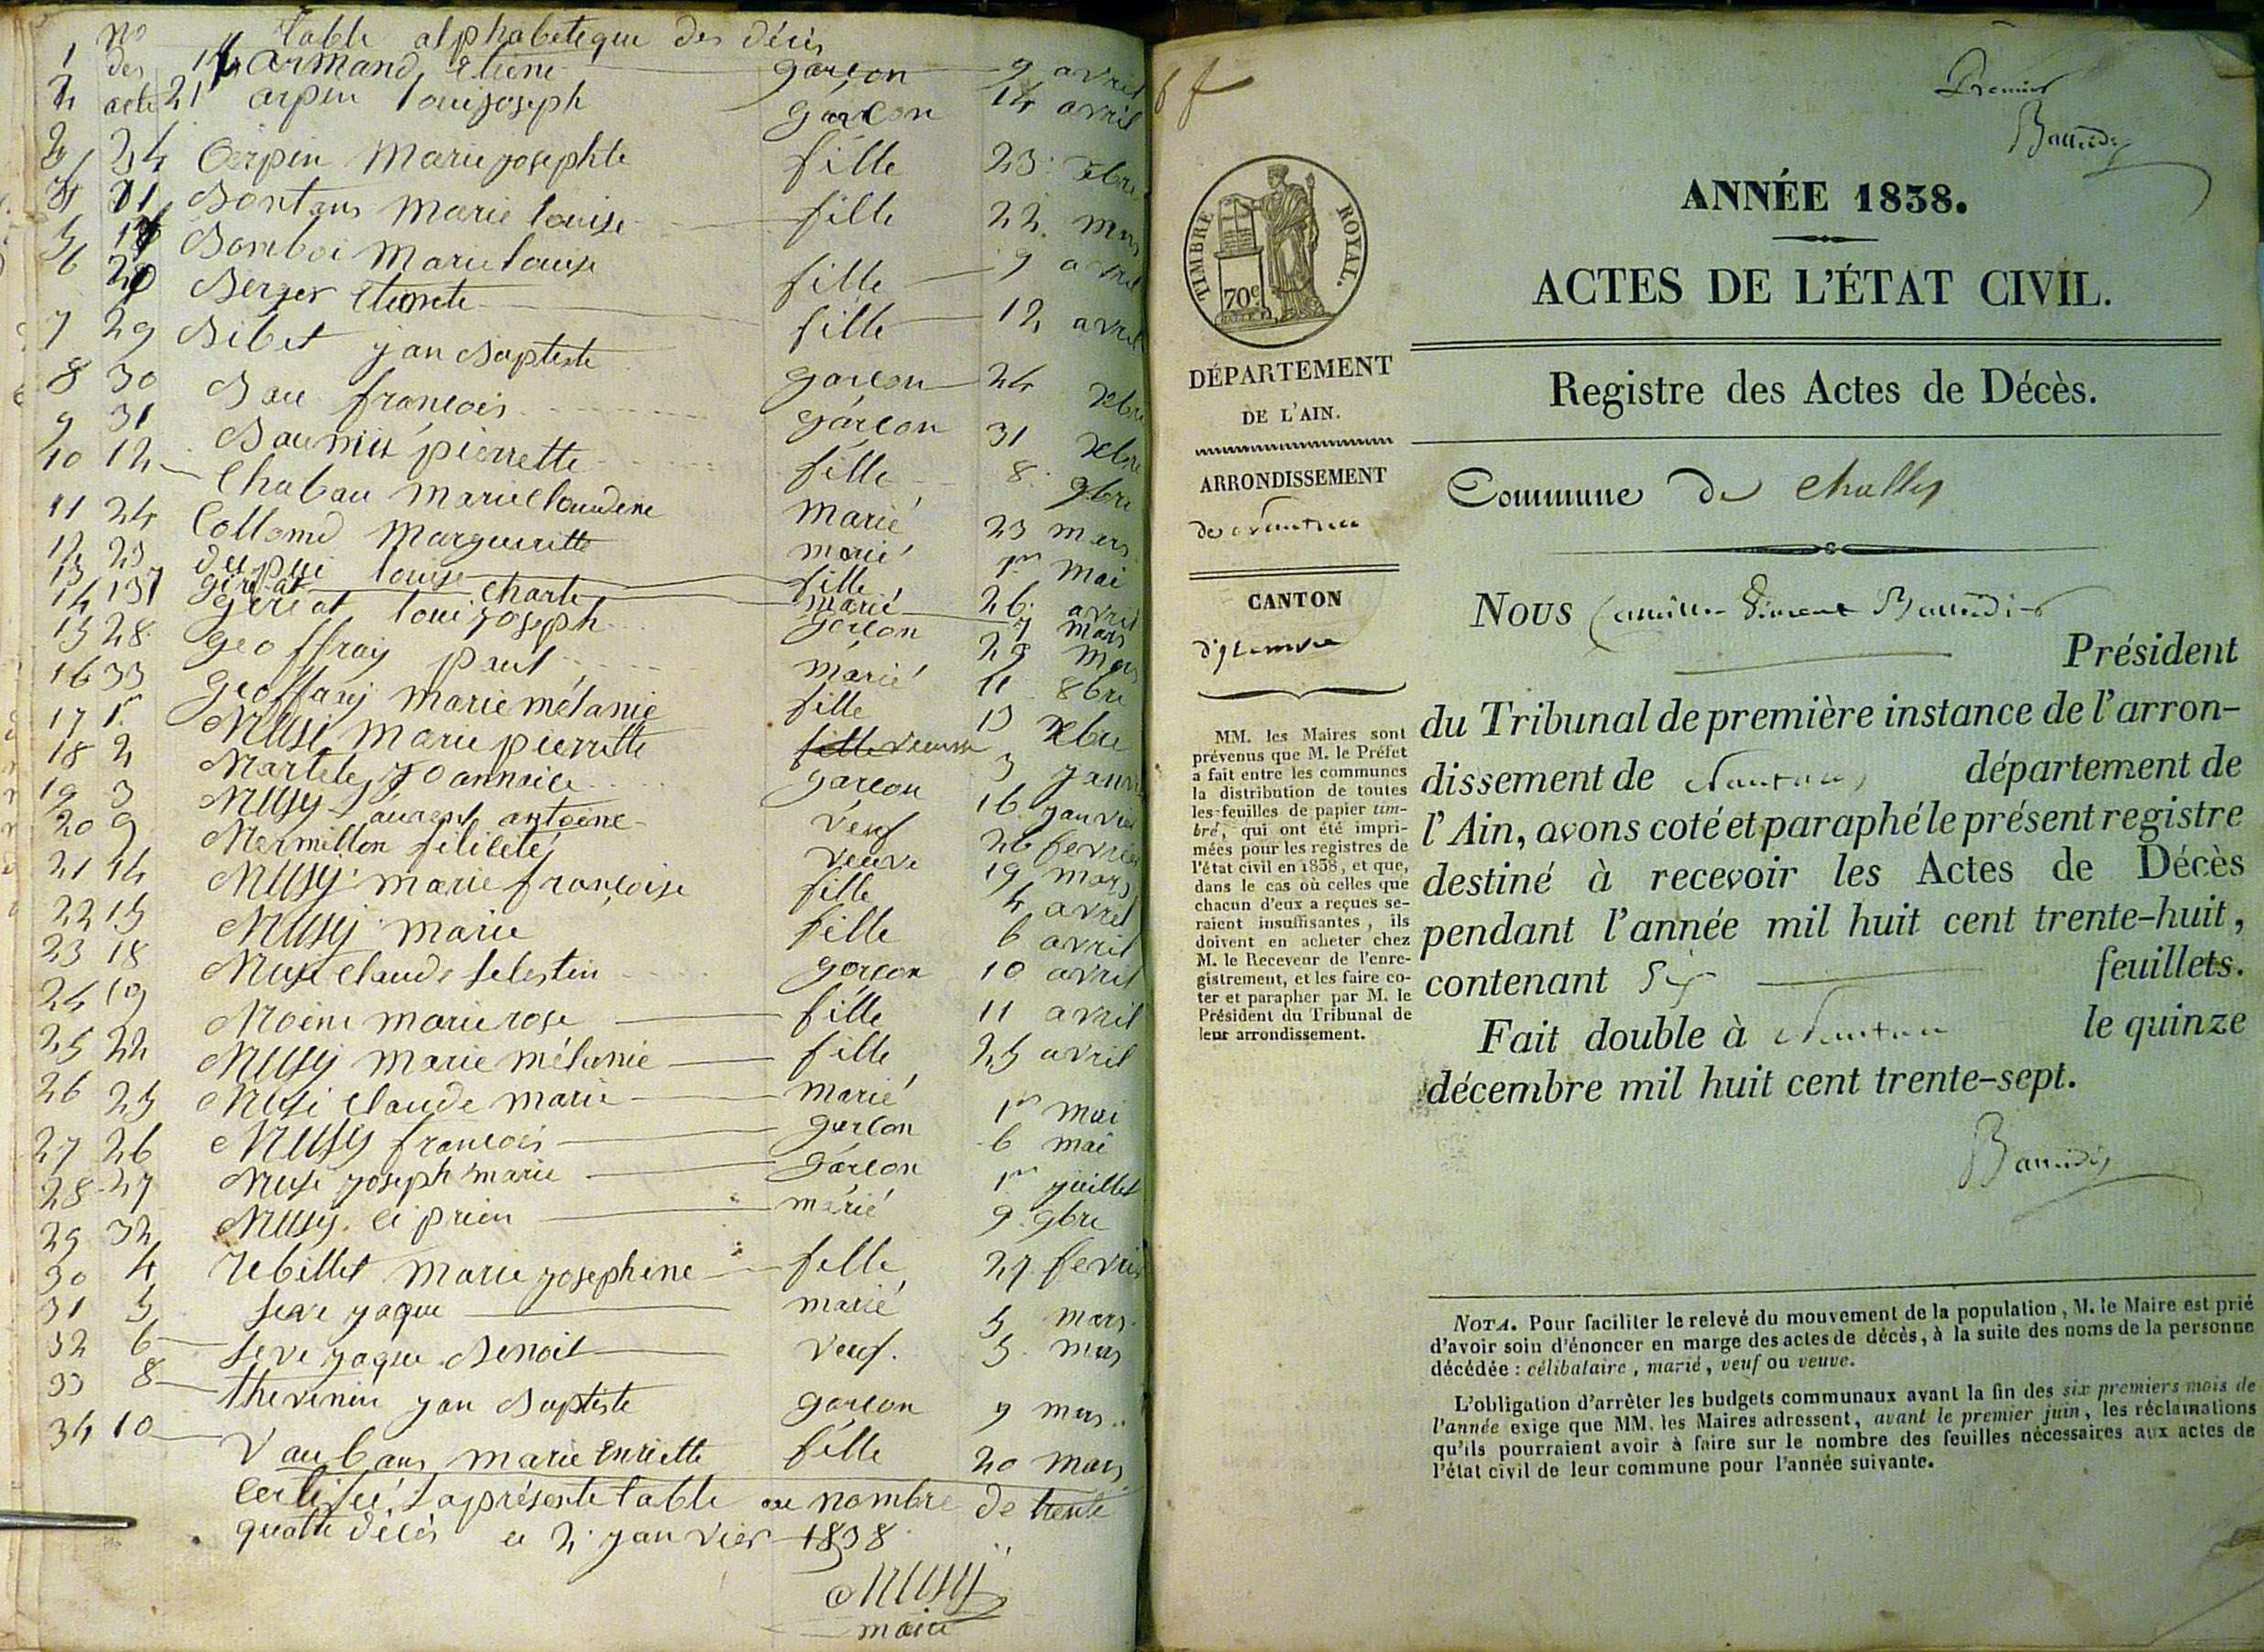 no
des
acte
table alphabeteque des décès
1 armand etiene garcon 9 avril
2 21 arpin loui joseph garcon 14 avril
34 arpin Marie josephte fille 23 xbre
11 Bontans Marie louise fille 22 mars
5 Bomboi Marie louise fille 9 avril
6 20 Berger fille 12 avril
7 29 Bibet jan Baptiste garcon 24 xbre
8 30 Bau francois garcon 31 xbre
9 31 pierrette fille 8 9bre
10 12 Chabau Marie Claudine Marié 23 mars
11 24 Collomd Margueritte marié 1er Mai
12 23 dupui louise fille 26 avril
13 geriat charle marié 7 mars
14 13 geriat loui joseph garcon 29 mars
15 28 geoffray paul marié 11 8bre
16 33 geoffray Marie mélanie fille 13 xbre
17 1 Musi Marie pierrette 3 janvier
18 2 Martelej garcon 16 janvier
19 3 Musy Laurent antoine veuf 26 fevrier
20 9 Mermillon félicité veuve 19 mars
21 14 Musy marie françoise fille 4 avril
22 15 Musy marie fille 6 avril
23 18 Musi claude selestin garcon 10 avril
24 19 Moene marie rose fille 11 avril
25 22 Musy Marie mélanie fille 25 avril
26 25 Musi claude marie marié 1er mai
27 26 Musy francois garcon 6 mai
28 27 Musi joseph marie garcon 1er juillet
29 32 Musy ciprien marié 9 9bre
30 4 rebillet Marie josephine fille 27 fevrier
31 5 seve jaque marié 5 mars
32 6 seve jaque Benoit veuf. 5 mars
33 8 thevenin jan Baptiste garcon 9 mars
34 10 Vaubans marie enriette fille 20 mars
certifié la présente table au nombre de trente
quatre décès ce 2 janvier 1838
Musy
maire
6 f
Premier
TIMBRE ROYAL.
70c
DÉPARTEMENT
DE L'AIN.
ARRONDISSEMENT
de Nantua
CANTON
MM. les Maires sont
prévenus que M. le Préfet
a fait entre les communes
la distribution de toutes
les feuilles de papier tim-
bré, qui ont été impri-
mées pour les registres de
l'état civil en 1838, et que,
dans le cas où celles que
chacun d'eux a reçues se-
raient insuffisantes, ils
doivent en acheter chez
M. le Receveur de l'enre-
gistrement, et les faire co-
ter et parapher par M. le
Président du Tribunal de
leur arrondissement.
ANNÉE 1838.
ACTES DE L'ÉTAT CIVIL.
Registre des Actes de Décès.
Commune de Challes
Nous Camille
Président
du Tribunal de première instance de l'arron-
dissement de Nantua, département de
l'Ain, avons coté et paraphé le présent registre
destiné à recevoir les Actes de Décès
pendant l'année mil huit cent trente-huit,
contenant Six feuillets.
Fait double à Nantua le quinze
décembre mil huit cent trente-sept.
NOTA. Pour faciliter le relevé du mouvement de la population, M. le Maire est prié
d'avoir soin d'énoncer en marge des actes de décès, à la suite des noms de la personne
décédée : célibataire, marié, veuf ou veuve.
L'obligation d'arrêter les budgets communaux avant la fin des six premiers mois de
l'année exige que MM. les Maires adressent, avant le premier juin, les réclamations
qu'ils pourraient avoir à faire sur le nombre des feuilles nécessaires aux actes de
l'état civil de leur commune pour l'année suivante.